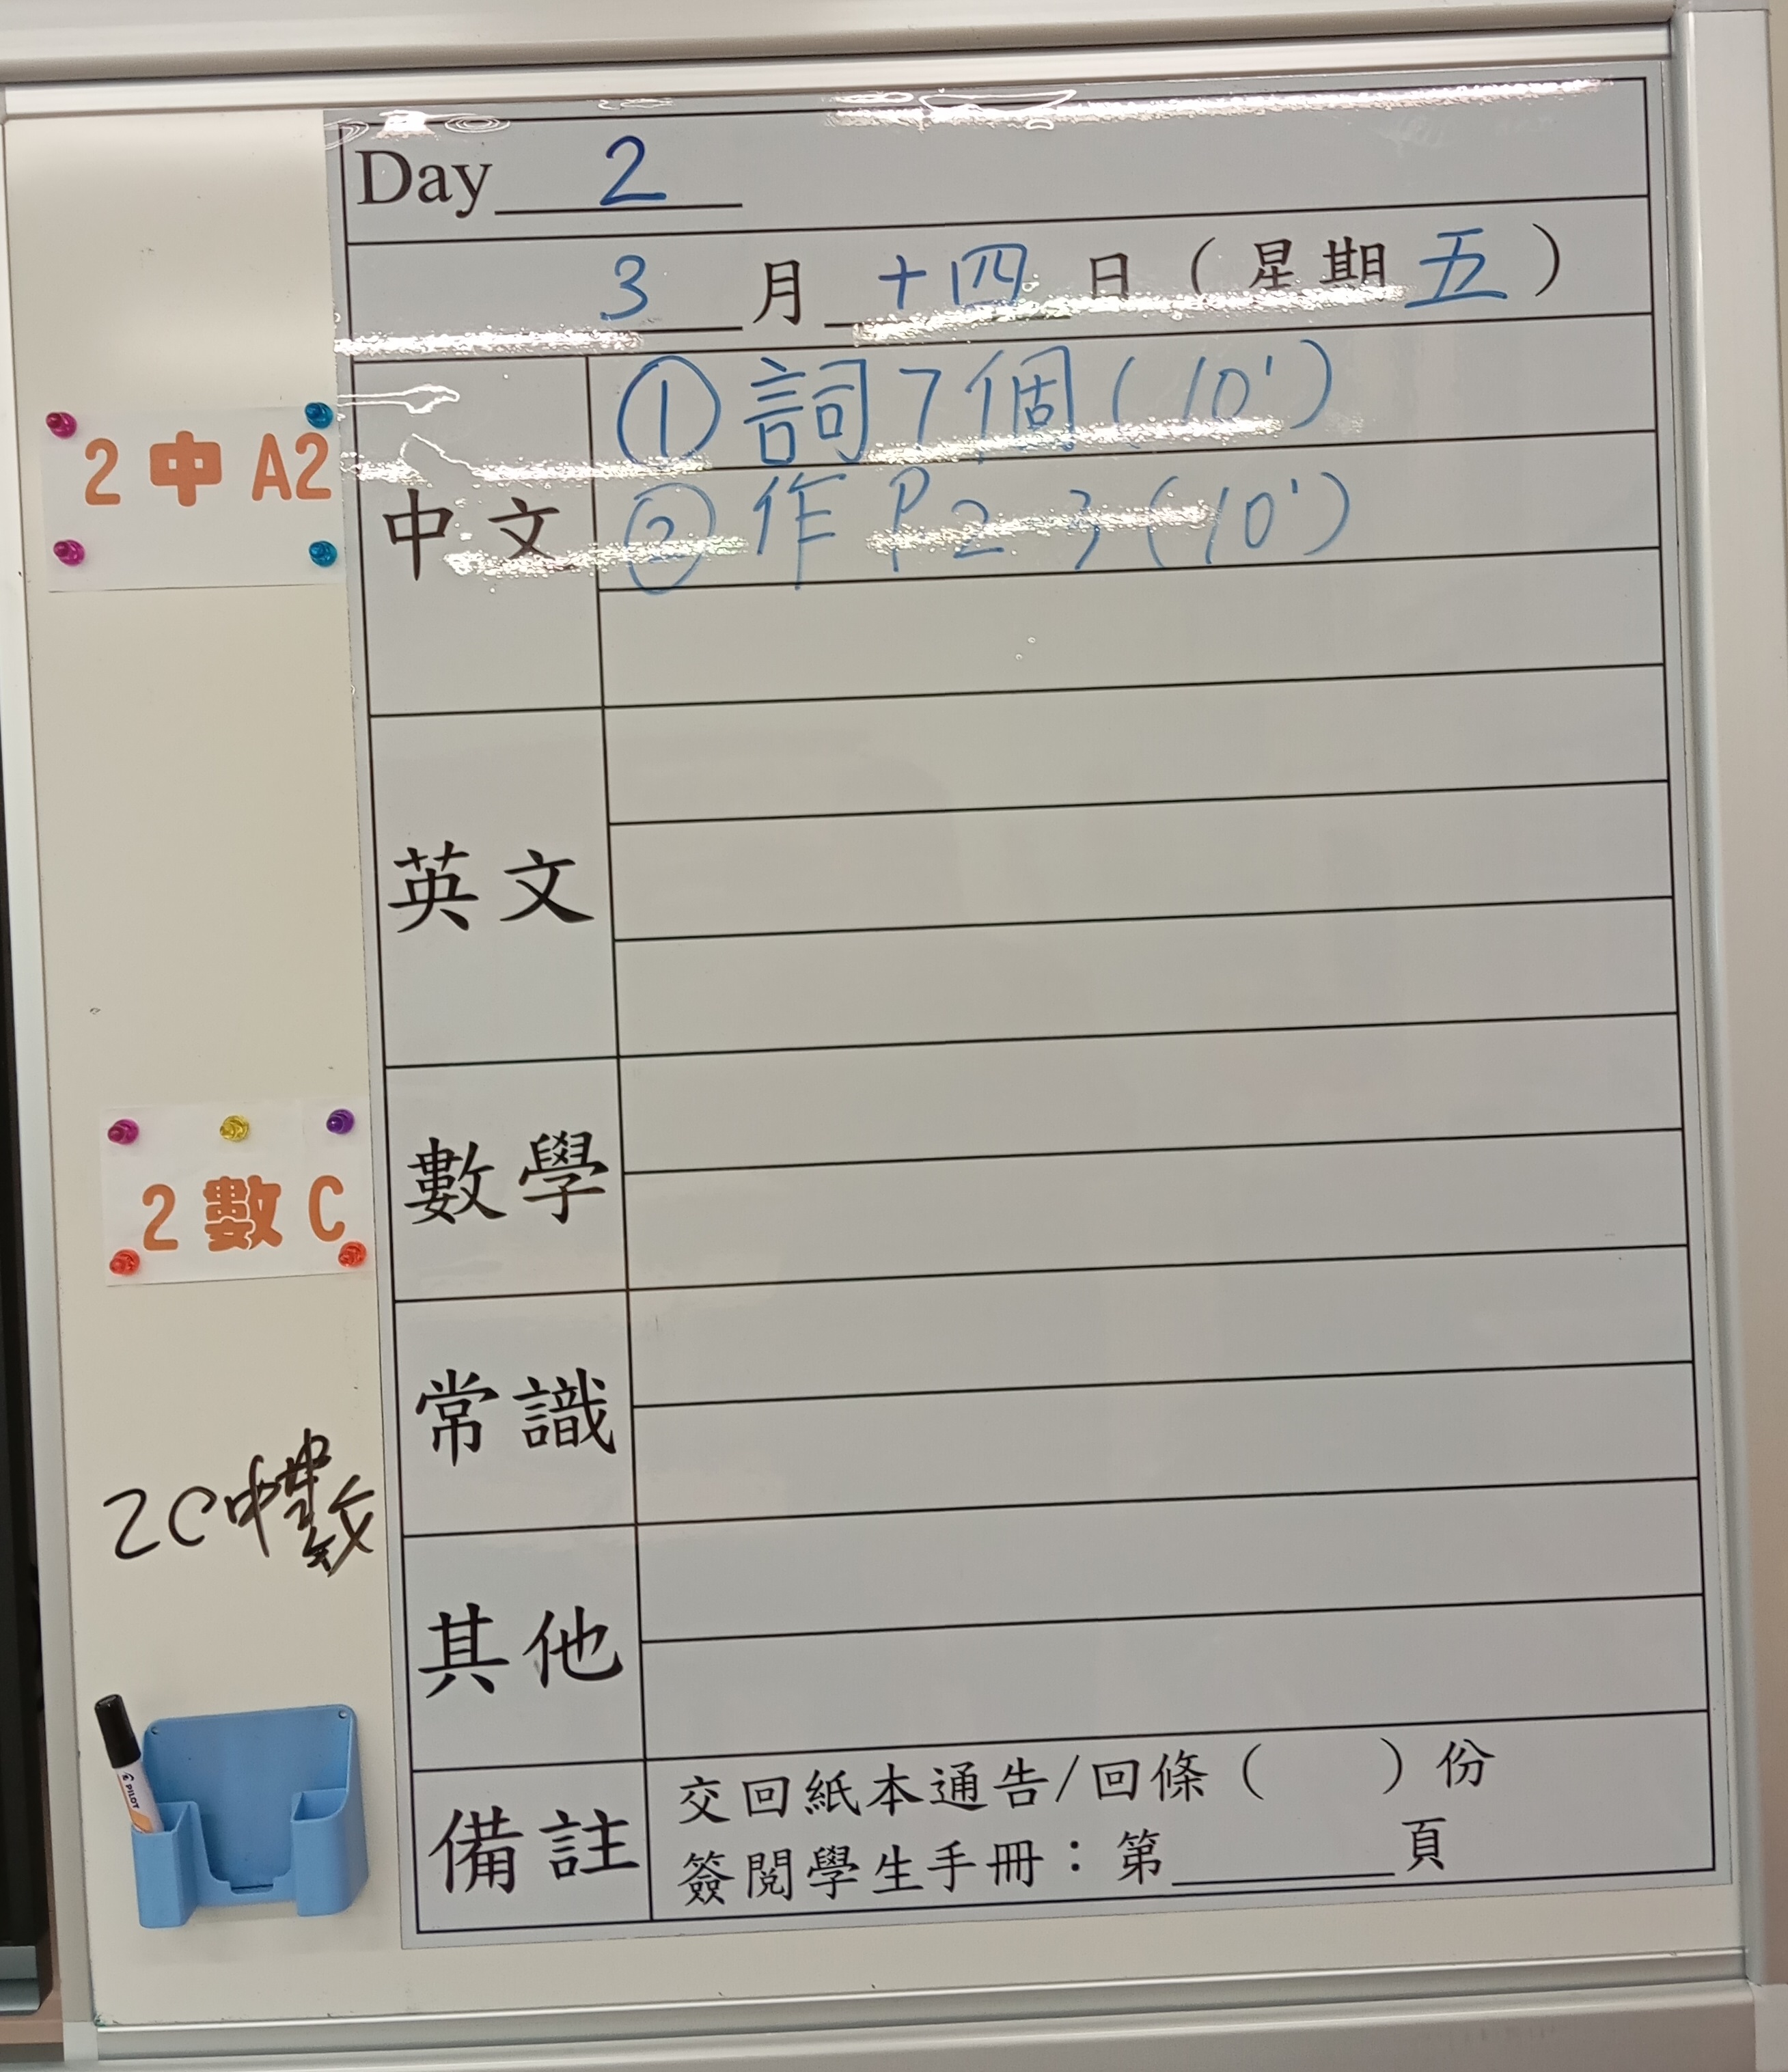 Day 2
3 月 十四 日 ( 星期 五 )
2 中 A2
中文
① 詞 7 個 ( 10' )
② 作 P 2-3 ( 10' )
英文
2 數 C
數學
常識
2C中數
其他
PILOT
備註
交回紙本通告/回條 (    ) 份
簽閱學生手冊：第______頁